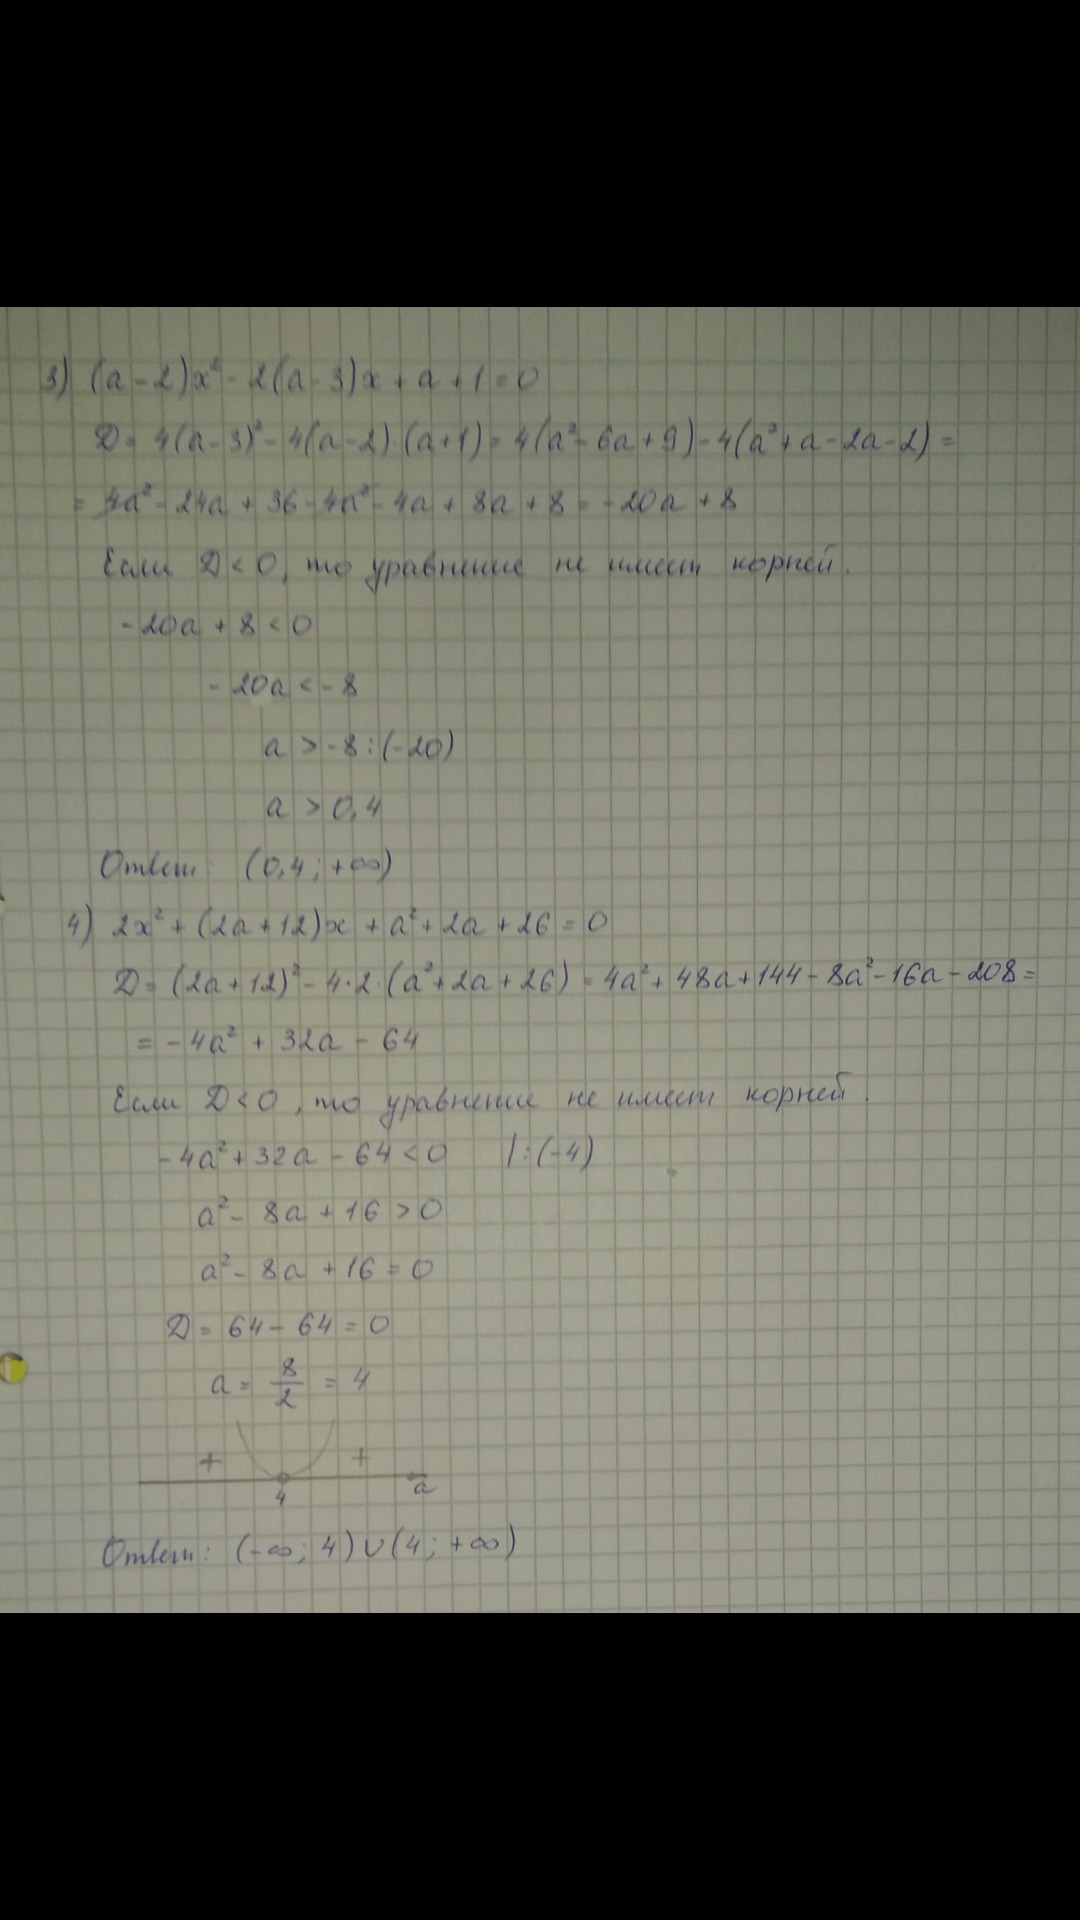 3) (a-2)x²-2(a-3)x+a+1=0
D=4(a-3)²-4(a-2)·(a+1)=4(a²-6a+9)-4(a²+a-2a-2)=
=4a²-24a+36-4a²-4a+8a+8=-20a+8
Если D<0, то уравнение не имеет корней.
-20a+8<0
-20a<-8
a>-8:(-20)
a>0,4
Ответ: (0,4;+∞)
4) 2x²+(2a+12)x+a²+2a+26=0
D=(2a+12)²-4·2·(a²+2a+26)=4a²+48a+144-8a²-16a-208=
=-4a²+32a-64
Если D<0, то уравнение не имеет корней.
-4a²+32a-64<0 |:(-4)
a²-8a+16>0
a²-8a+16=0
D=64-64=0
a=8/2=4
+ +
4 a
Ответ: (-∞;4)∪(4;+∞)